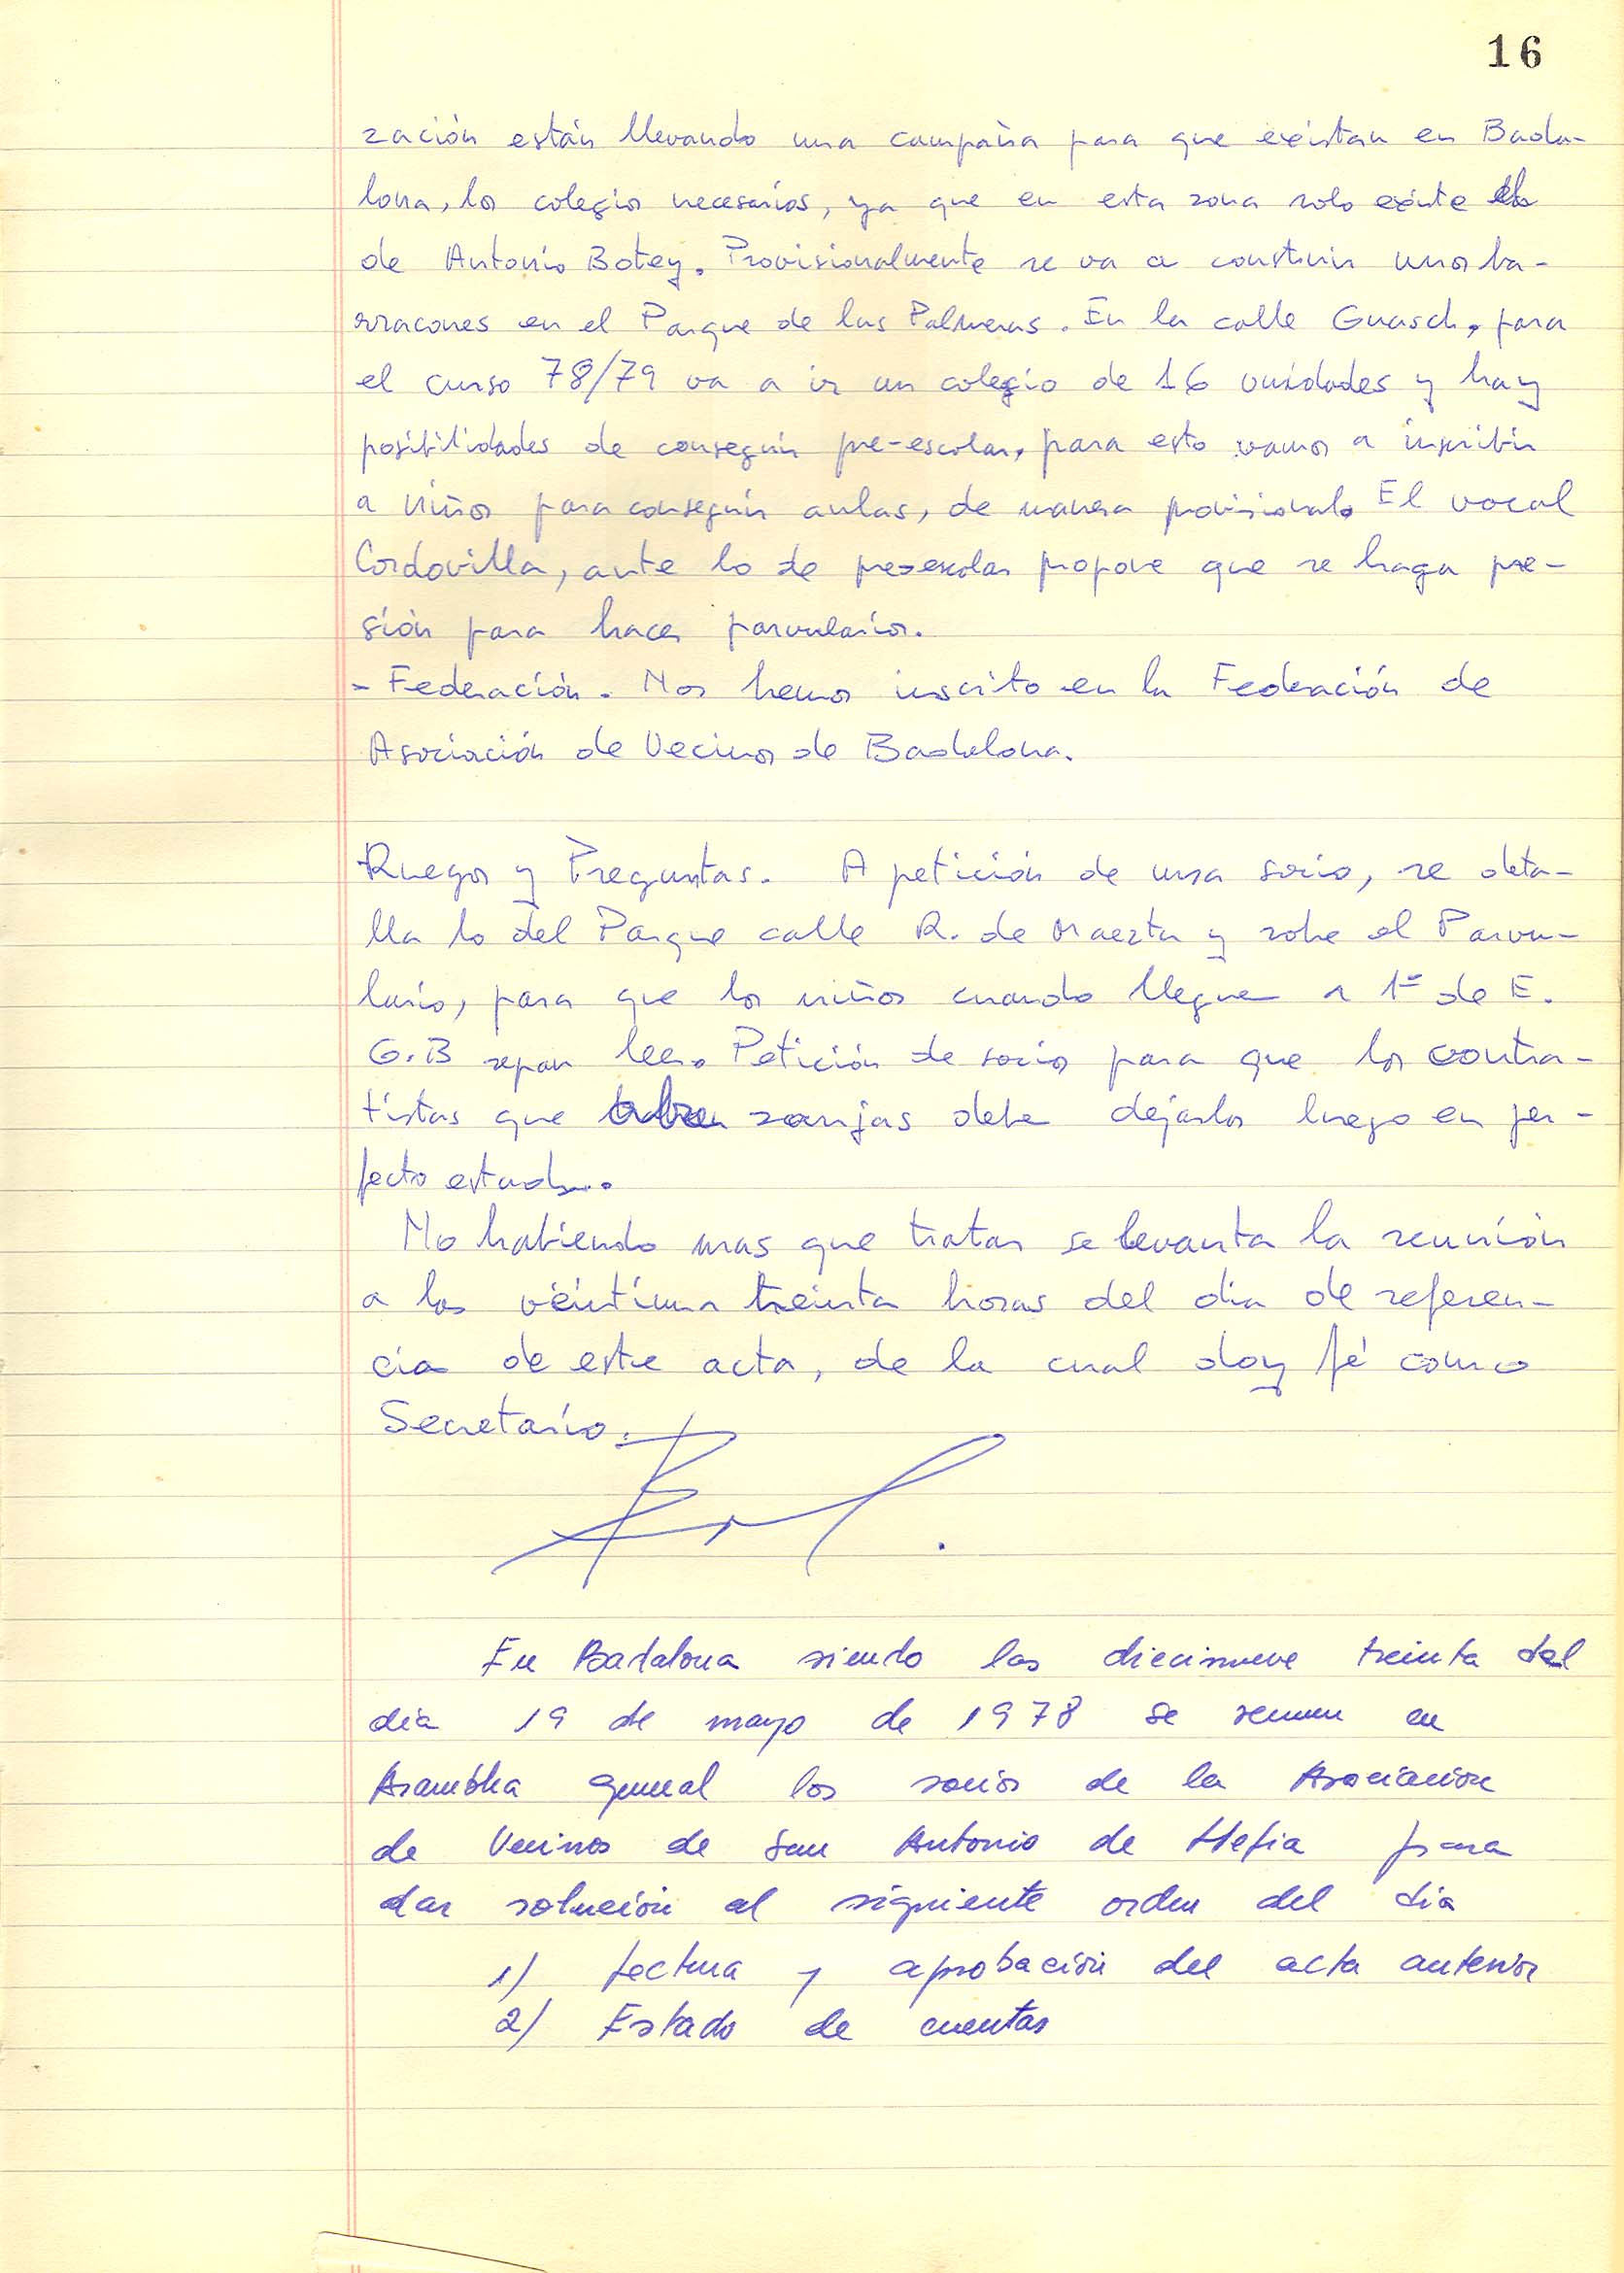 16
zación están llevando una campaña para que existan en Bada-
lona, los colegios necesarios, ya que en esta zona solo existe el
de Antonio Botey. Provisionalmente se va a construir unos ba-
rracones en el Parque de las Palmeras. En la calle Guasch, para
el curso 78/79 va a ir un colegio de 16 unidades y hay
posibilidades de conseguir pre-escolar, para esto vamos a inscribir
a niños para conseguir aulas, de manera provisional. El vocal
Cordovilla, ante lo de preescolar propone que se haga pre-
sión para hacer parvularios.
- Federación. Nos hemos inscrito en la Federación de
Asociación de Vecinos de Badalona.
Ruegos y Preguntas. A petición de una socio, se deta-
lla lo del Parque calle R. de Maeztu y sobre el Parvu-
lario, para que los niños cuando llegue a 1º de E.
G.B sepan leer. Petición de socio para que los contra-
tistas que abren zanjas debe dejarlos luego en per-
fecto estado.
No habiendo mas que tratar se levanta la reunión
a las veintiuna treinta horas del dia de referen-
cia de este acta, de la cual doy fé como
Secretario.
En Badalona siendo las diecinueve treinta del
dia 19 de mayo de 1978 se reunen en
Asamblea general los socios de la Asociacion
de Vecinos de San Antonio de Llefia para
dar solución al siguiente orden del dia
1) Lectura y aprobación del acta anterior
2) Estado de cuentas